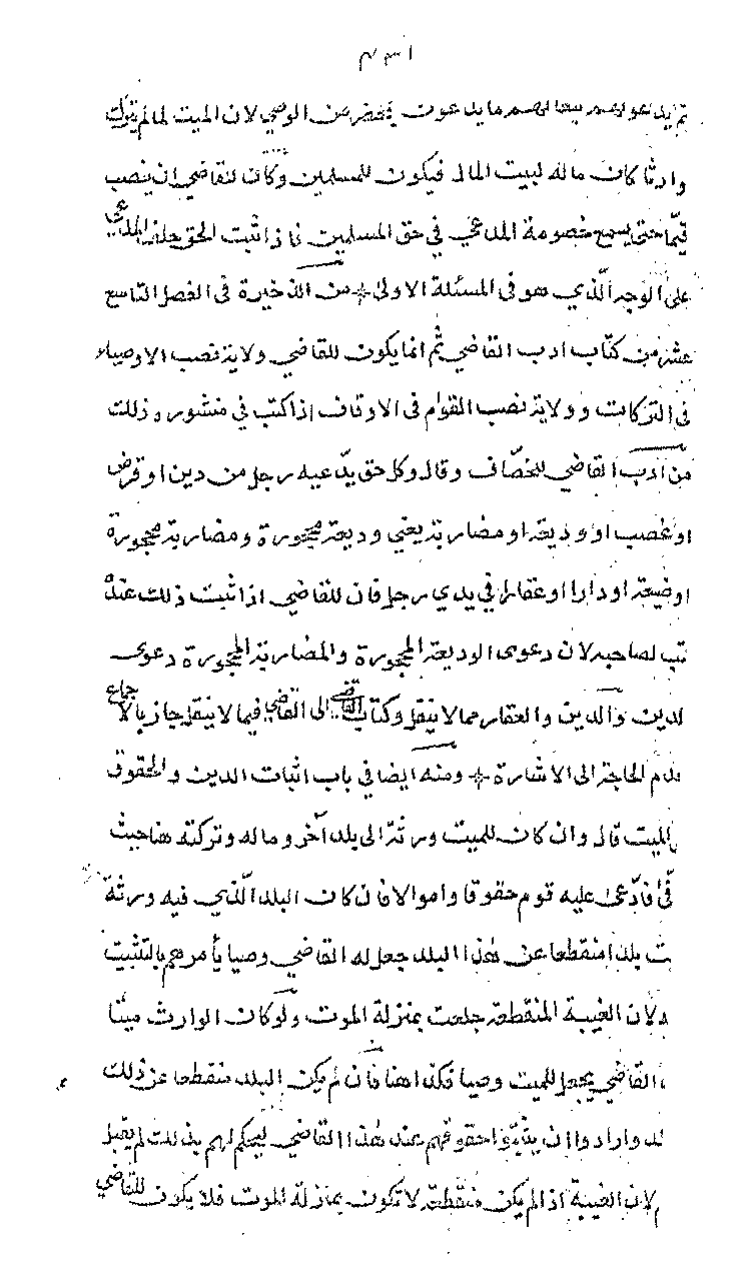 لهم ما يدعون بحضر من الوصي لان الميت لما لم يترك
وارثا كان ماله لبيت المال فيكون للمسلمين وكان للقاضي ان ينصب
قيما حتى يسمع خصومة المدعي في حق المسلمين فاذا ثبت الحق حلف المدعي
على الوجه الذي هو في المسئلة الاولى من الذخيرة في الفصل التاسع
عشر من كتاب ادب القاضي ثم انما يكون للقاضي ولاية نصب الاوصياء
في التركات وولاية نصب القوام في الاوقاف اذا كتب في منشوره ذلك
من ادب القاضي للخصاف وقال وكل حق يدعيه رجل من دين او قرض
او غصب او وديعة او مضاربة يعني وديعة مجحورة ومضاربة مجحورة
او ضيعة او دارا او عقارا في يدي رجل فان للقاضي اذا ثبت ذلك عنده
تب لصاحبه لان دعوى الوديعة المجحورة والمضاربة المجحورة دعوى
لدين والدين والعقار مما لا ينقل وكتاب القاضي الى القاضي فيما لا ينقل جاز بالاجماع
دم الحاجة الى الاشارة ومنه ايضا في باب اثبات الدين والحقوق
الميت قال وان كان للميت ورثة الى بلد آخر وماله وتركته هنا حيث
فى فادعى عليه قوم حقوقا واموالا فان كان البلد الذي فيه ورثة
ت بلدا منقطعا عن هذا البلد جعل له القاضي وصيا يأمرهم بالتثبيت
لان الغيبة المنقطعة جلعت بمنزلة الموت ولو كان الوارث ميتا
القاضي يجعل للميت وصيا فكذا هنا فان لم يكن البلد منقطعا عن ذلك
لد وارادوا ان يثبتوا حقوقهم عند هذا القاضي ليحكم لهم بذلك لم يقبل
لان الغيبة اذا لم يكن منقطعة لا تكون بمنزلة الموت فلا يكون للقاضي